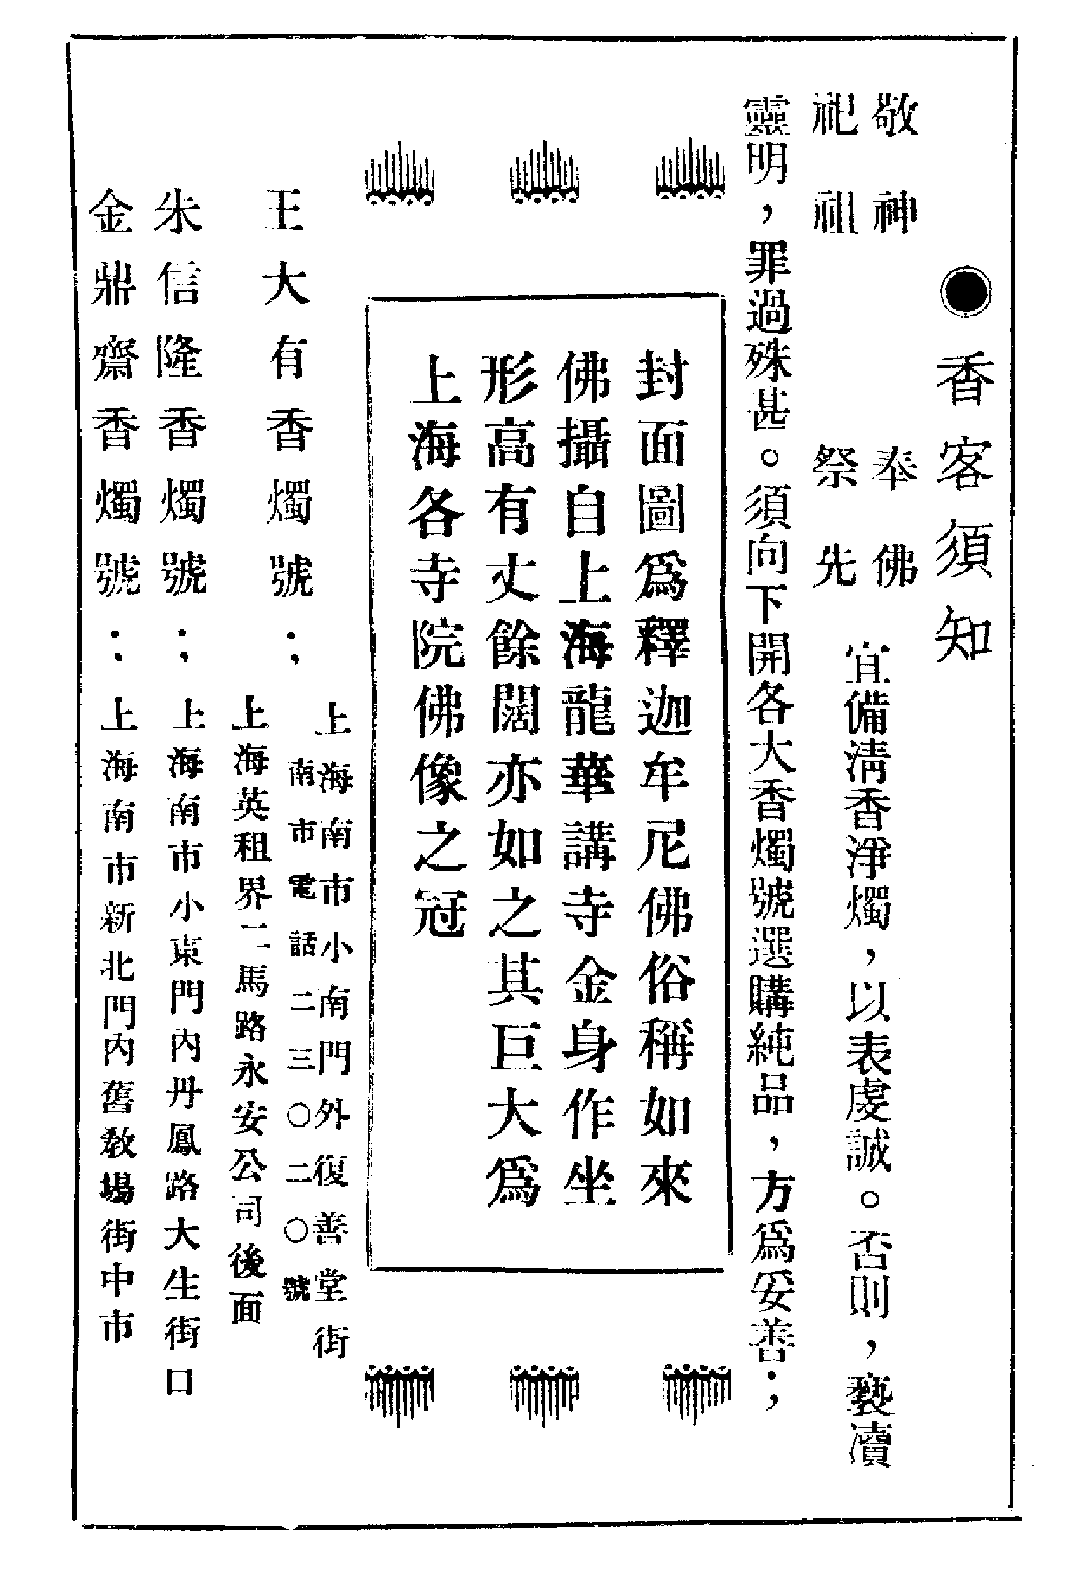 ●香客須知
敬神 奉佛
祀祖 祭先
宜備淸香淨燭，以表虔誠。否則，褻瀆
靈明，罪過殊甚。須向下開各大香燭號選購純品，方爲妥善；
封面圖爲釋迦牟尼佛俗稱如來
佛攝自上海龍華講寺金身作坐
形高有丈餘闊亦如之其巨大爲
上海各寺院佛像之冠
王大有香燭號；
上海南市小南門外復善堂街
南市電話二三〇二〇號
上海英租界二馬路永安公司後面
朱信隆香燭號；上海南市小東門內丹鳳路大生街口
金鼎齋香燭號：上海南市新北門內舊敎塲街中市